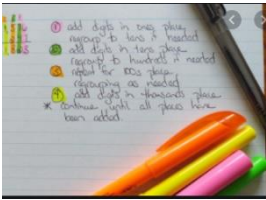 ① add digits in ones place
regroup to tens if needed
② add digits in tens place
regroup to hundreds if needed
③ repeat for 100s place
regrouping as needed
④ add digits in thousands place
* continue until all places have
been added